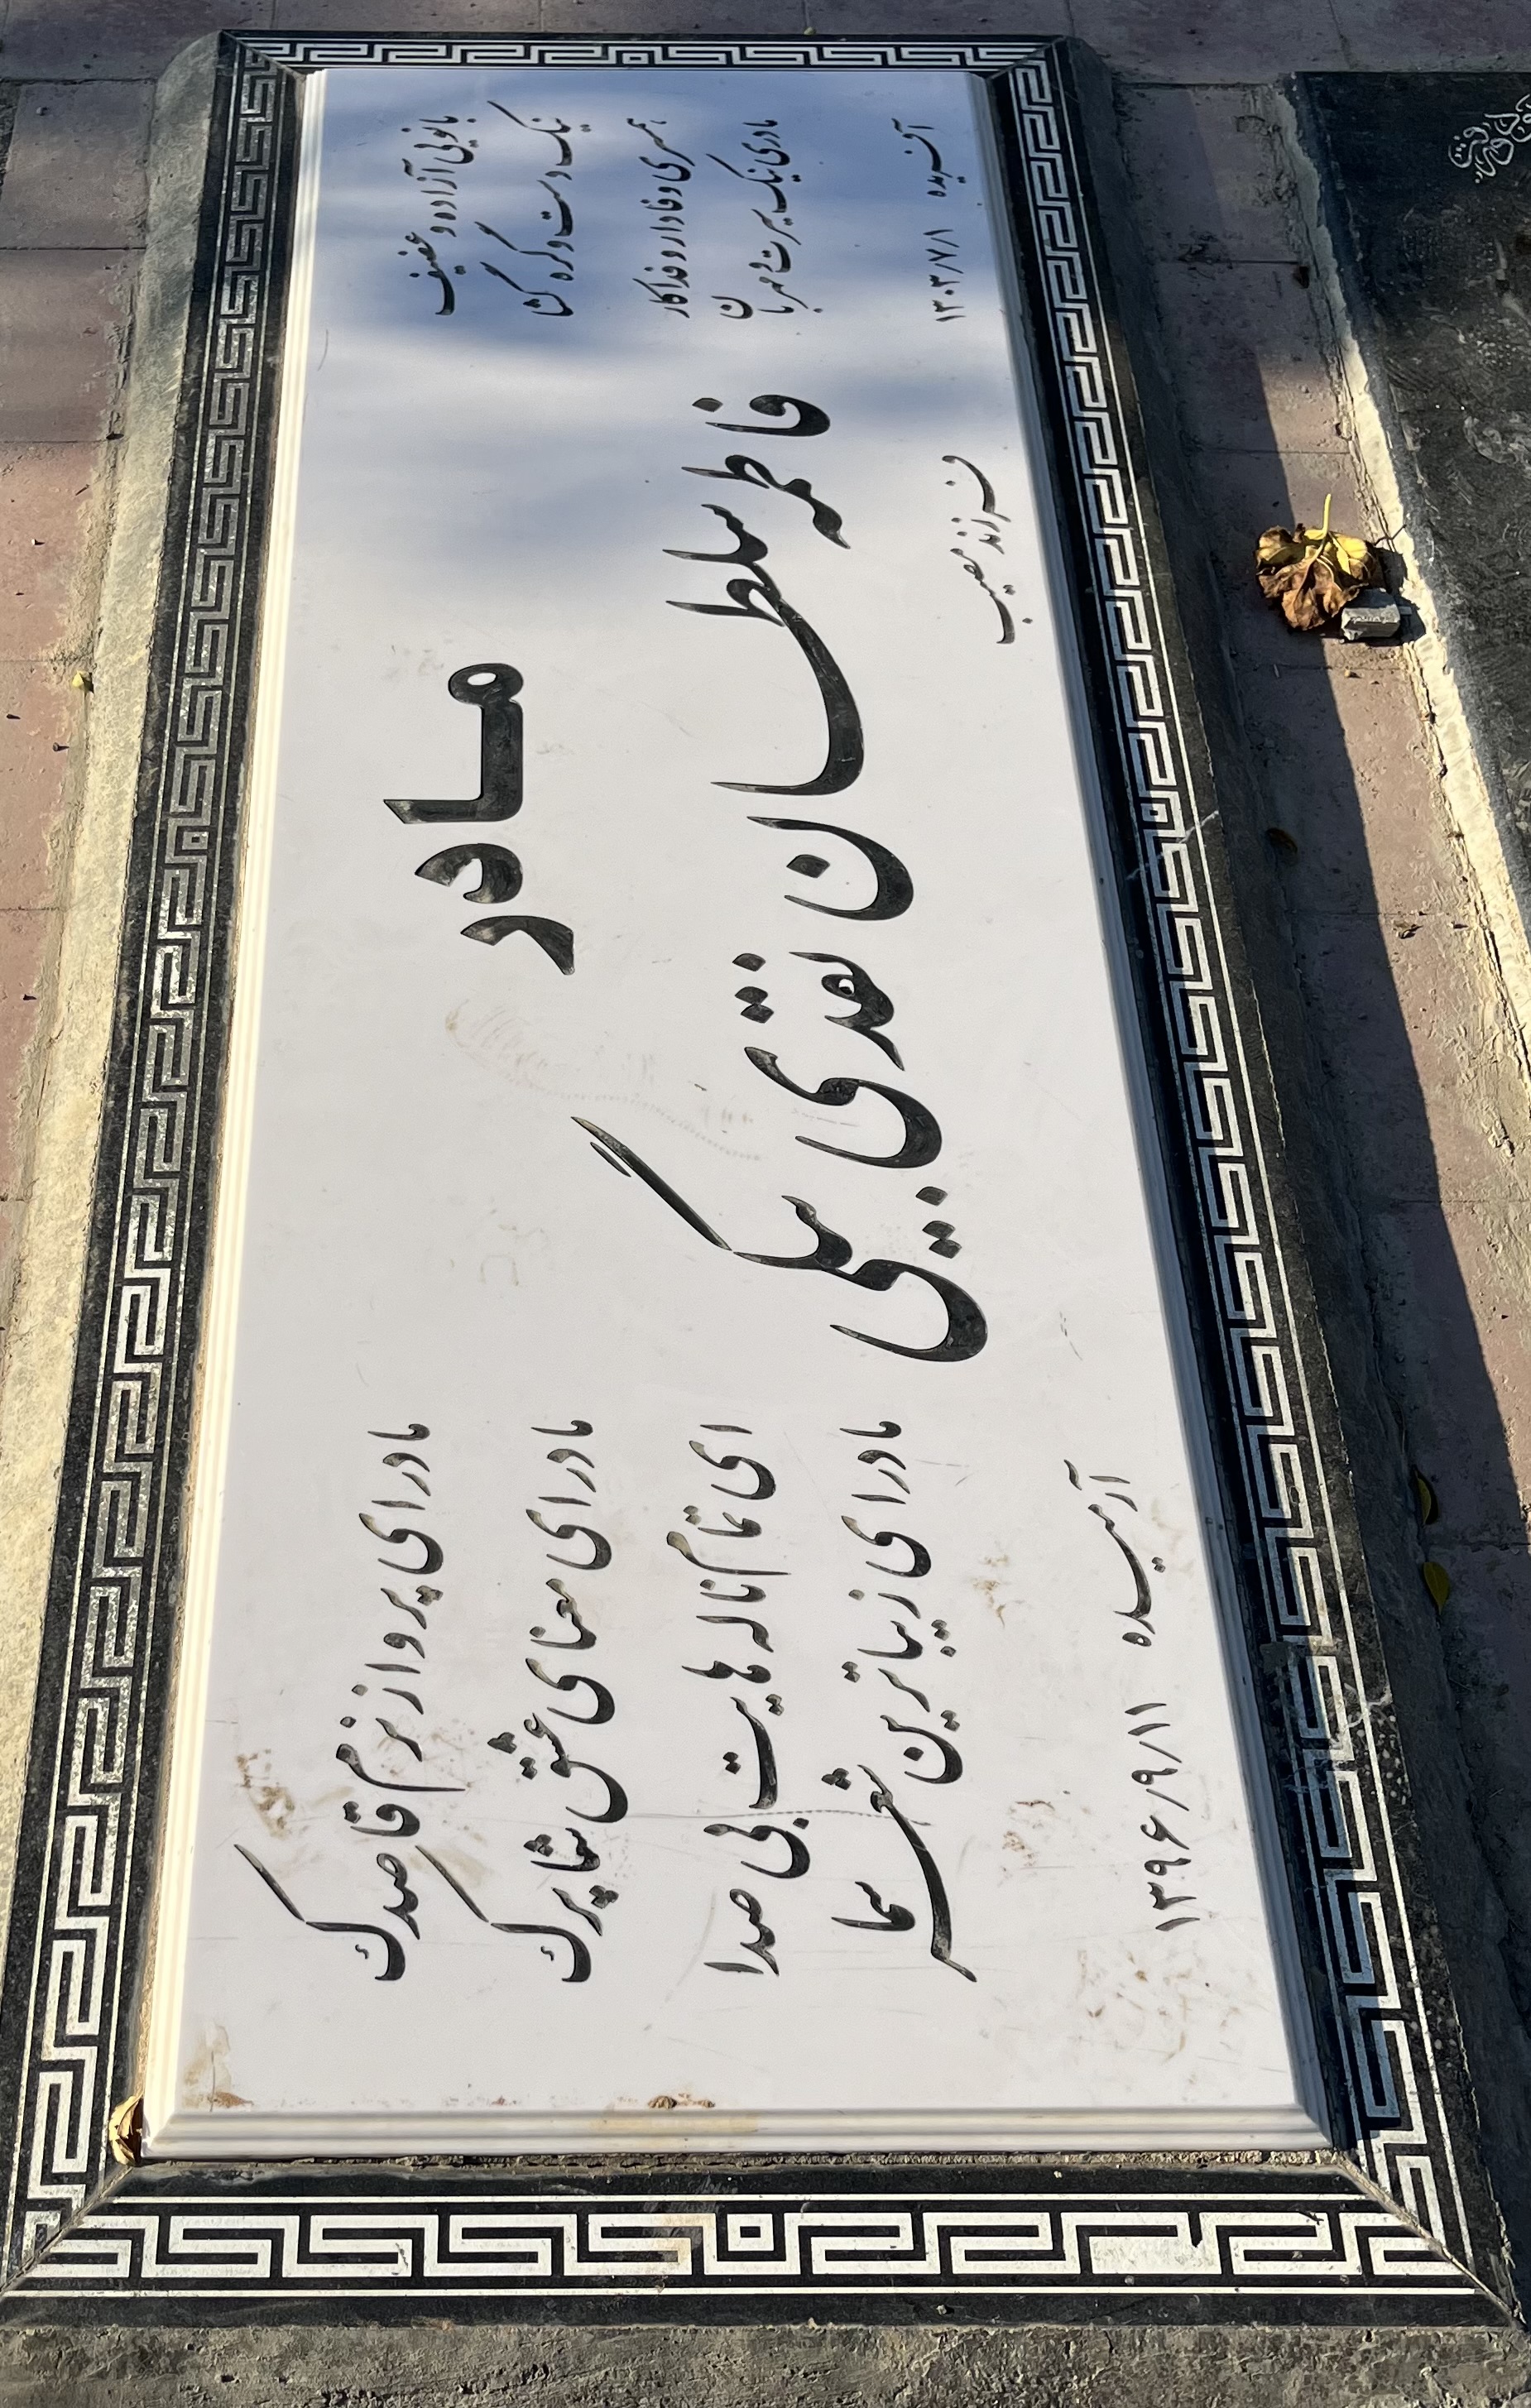 بانویی آزاده و عفیف
نیک دست و گره گشا
همسری وفادار و فداکار
مادری نیک سیرت و مهربان
آفریده ۱۳۰۳/۷/۱
مادر
فاطمه سلطان نقدی بیگی
فرزند مصیب
مادر ای پرواز نرم قاصدک
مادر ای معنای عشق شاپرک
ای تمام ناله هایت بی صدا
مادر ای زیباترین شعر سما
آرمیده ۱۳۹۶/۹/۱۱